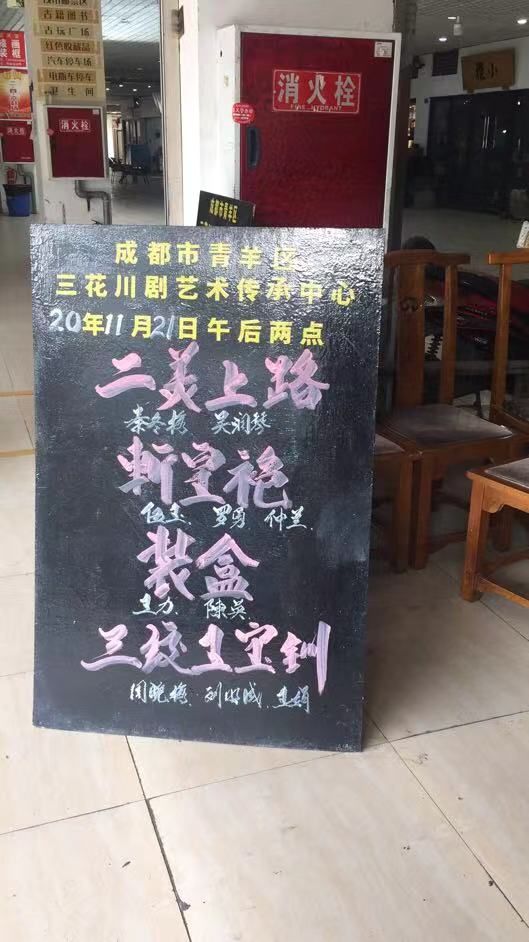 古籍图书
古玩广场
红色收藏品
汽车停车场
电瓶车停车
卫生间
画框
消火栓
消火栓
FIRE HYDRANT
小雅
成都市青羊区
成都市青羊区
三花川剧艺术传承中心
20年11月21日午后两点
二美上路
秦冬梅 吴润琴
斩皇袍
伍玉 罗勇 仲兰
装盒
王力 陈英
三放王宝钏
周晓梅 刘好成 王娟